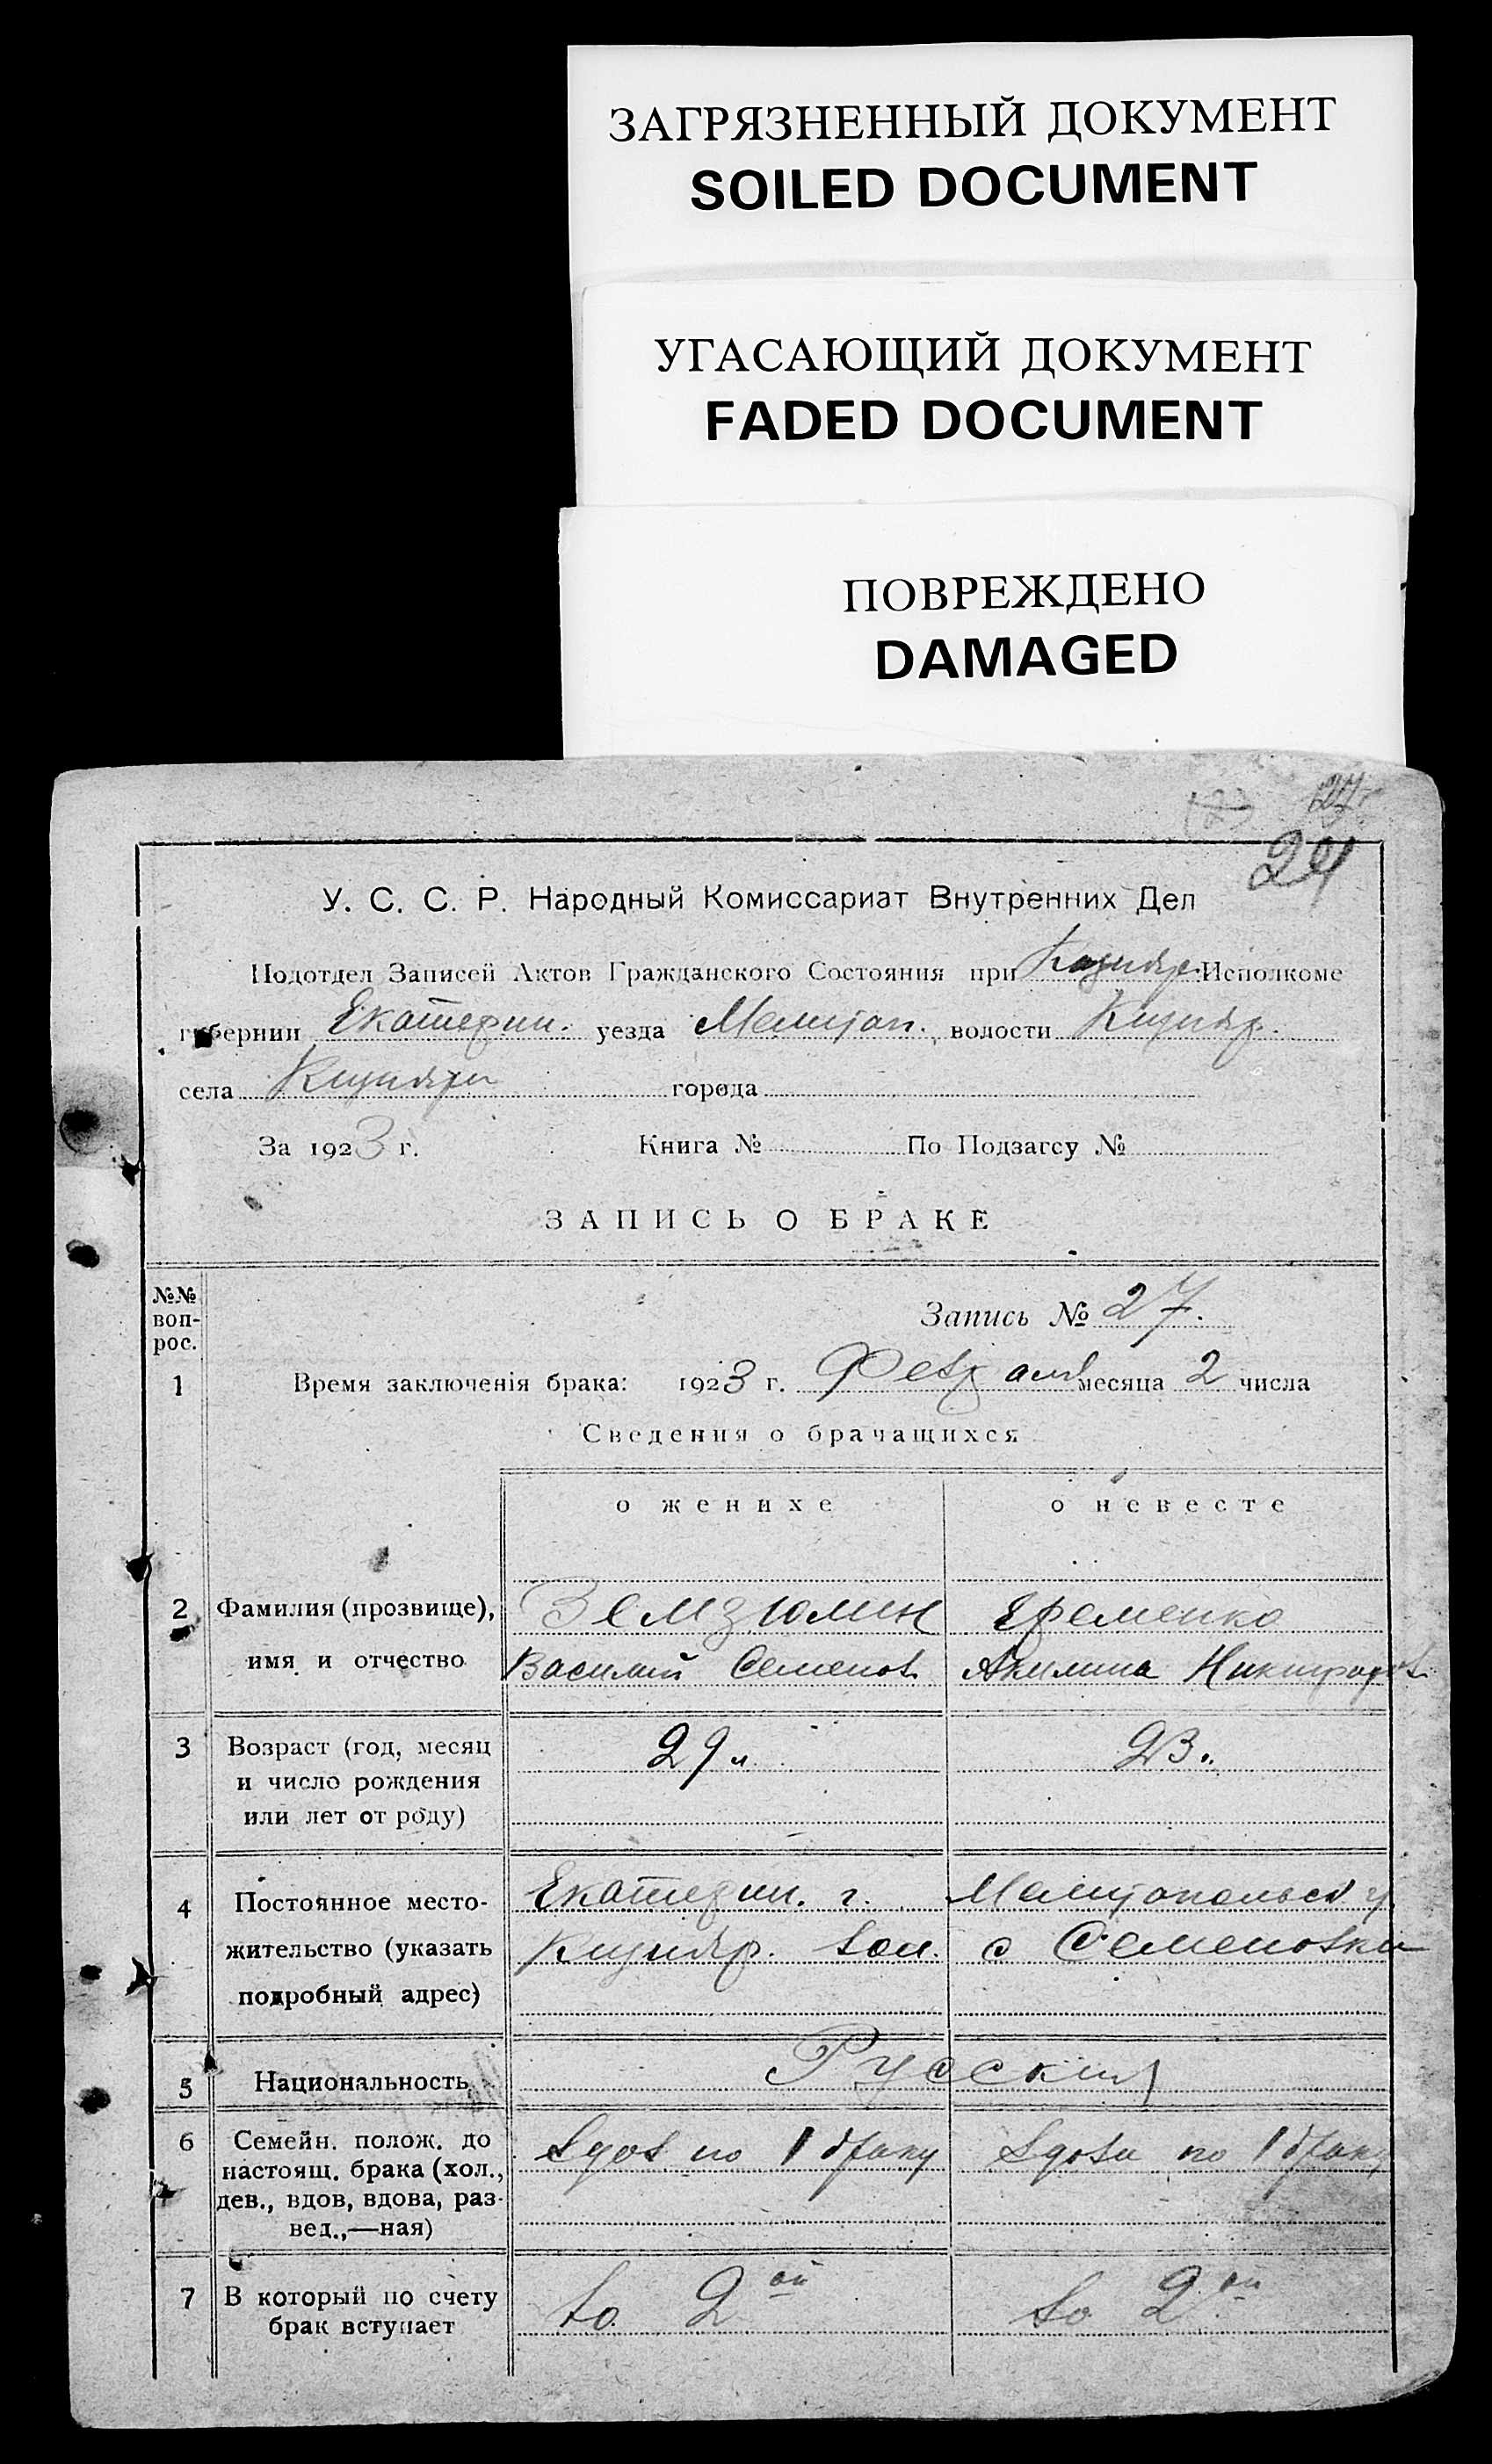 ЗАГРЯЗНЕННЫЙ ДОКУМЕНТ
SOILED DOCUMENT
УГАСАЮЩИЙ ДОКУМЕНТ
FADED DOCUMENT
ПОВРЕЖДЕНО
DAMAGED
27
24
У. С. С. Р. Народный Комиссариат Внутренних Дел
Подотдел Записей Актов Гражданского Состояния при Исполкоме
губернии Екатерин. уезда Мелитоп. волости Кизияр.
села Кизияри города
За 1923 г. Книга № По Подзагсу №
ЗАПИСЬ О БРАКЕ
№№ воп- рос.
Запись № 27.
1 Время заключенія брака: 1923 г. Февраля месяца 2 числа
Сведения о брачащихся
о женихе о невесте
2 Фамилия (прозвище), Земзюлин Еременко
имя и отчество Василий Семенов. Акилина Никифоров.
3 Возраст (год, месяц 29 л. 23 л.
и число рождения
или лет от роду)
4 Постоянное место- Екатерин. г. Мелитопольск у.
жительство (указать Кизияр. вол. с Семеновки
подробный адрес)
5 Национальность Русские
6 Семейн. полож. до Вдов по 1 браку Вдова по 1 браку
настоящ. брака (хол.,
дев., вдов, вдова, раз-
вед.,—ная)
7 В который по счету во 2ой во 2ой
брак вступает